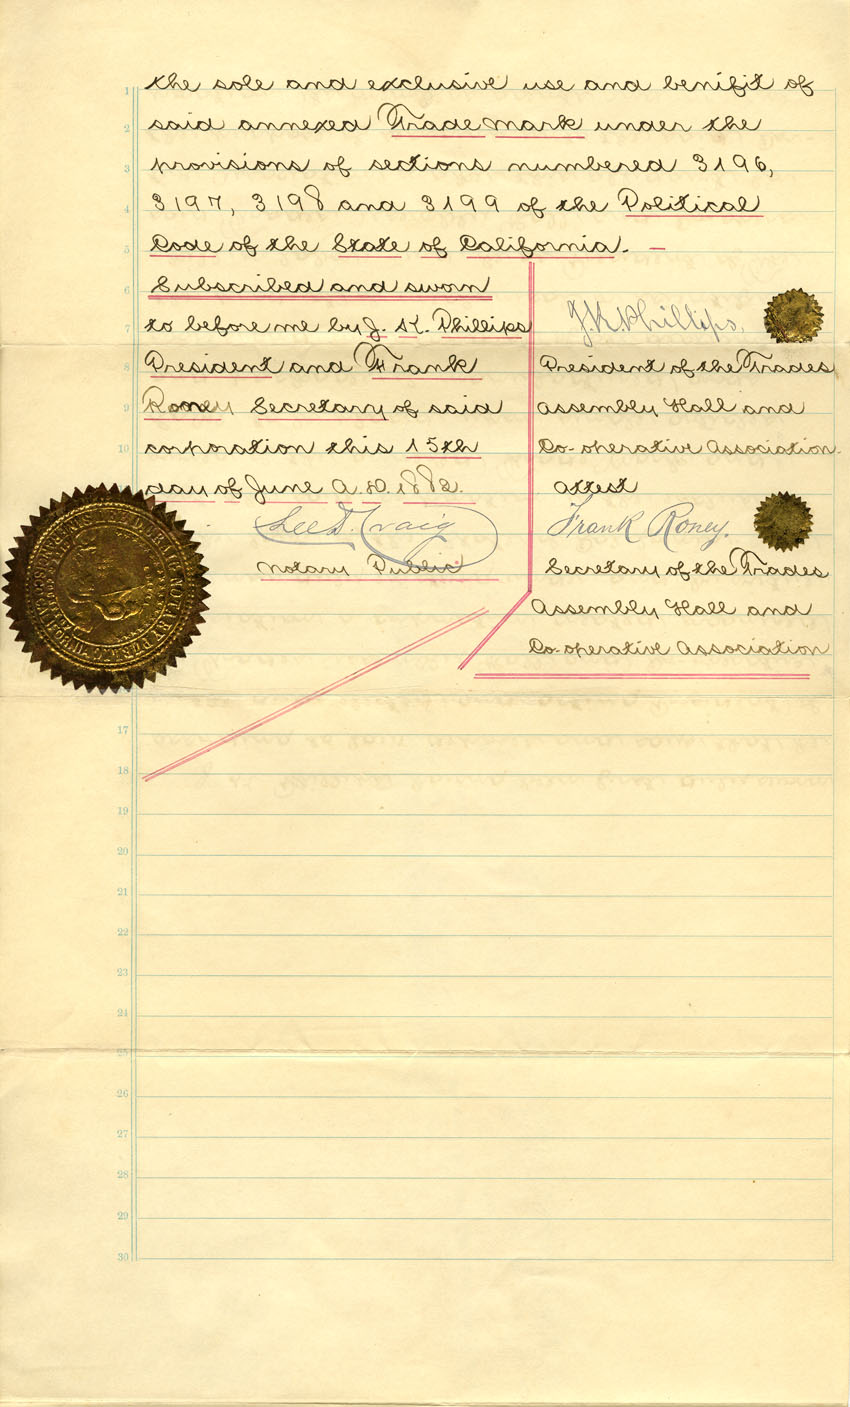 the sole and exclusive use and benifit of
said annexed Trade mark under the
provisions of sections numbered 3196,
3197, 3198 and 3199 of the Political
Code of the State of California. —
Subscribed and sworn
to before me by J. K. Phillips
President and Frank
Roney Secretary of said
corporation this 15th
day of June A.D. 1882.
Lee D. Craig
Notary Public
J. K. Phillips.
President of the Trades
Assembly Hall and
Co-operative Association.
attest
Frank Roney.
Secretary of the Trades
Assembly Hall and
Co-operative Association
1
2
3
4
5
6
7
8
9
10
17
18
19
20
21
22
23
24
25
26
27
28
29
30